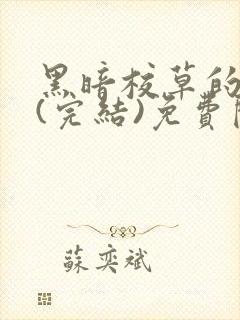 黑暗校草的
(完結)免費
蘇奕斌